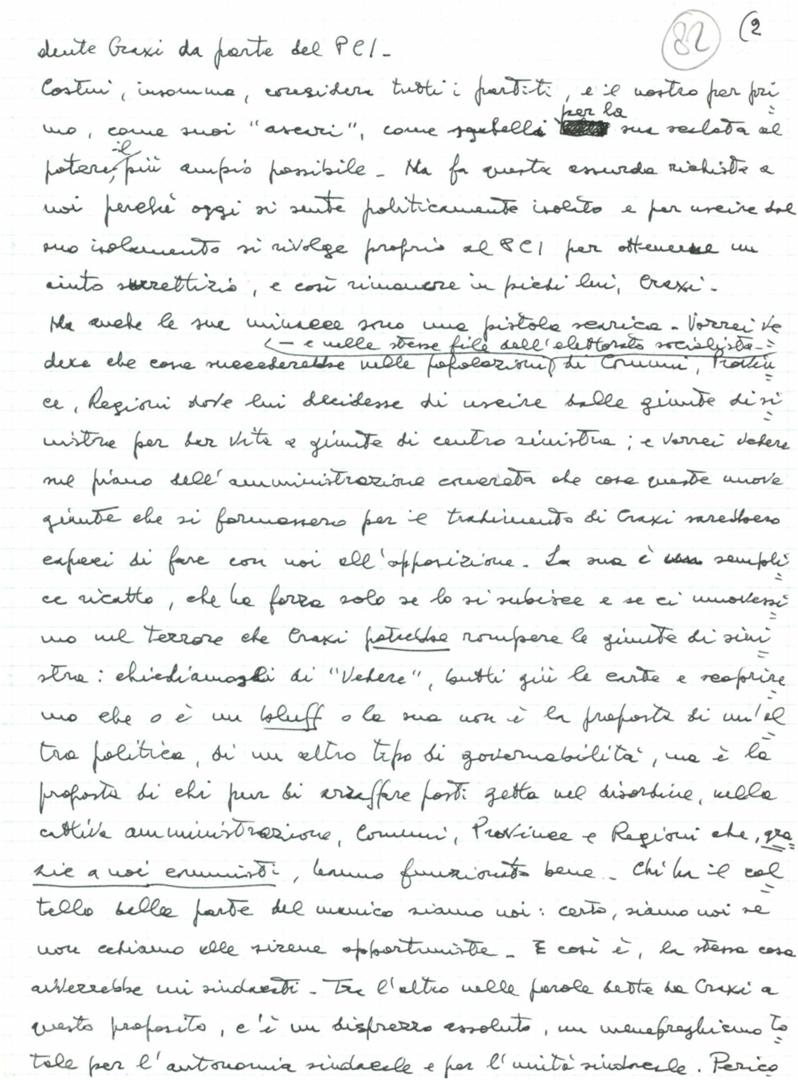 82 (2
dente Craxi da parte del PCI -
Costui, insomma, considera tutti i partiti, e il nostro per pri=
per la
mo, come suoi "ascari", come sgabelli sua scalata al
il
potere, più ampio possibile - Ma fa questa assurda richiesta a
noi perché oggi si sente politicamente isolato e per uscire dal
suo isolamento si rivolge proprio al PCI per ottenerne un
aiuto surrettizio, e così rimanere in piedi lui, Craxi -
Ma anche le sue minacce sono una pistola scarica - Vorrei ve=
- e nelle stesse file dell'elettorato socialista -
dere che cosa succederebbe nelle popolazioni di Comuni, Provin=
ce, Regioni dove lui decidesse di uscire dalle giunte di si=
nistra per dar vita a giunte di centro sinistra; e vorrei vedere
sul piano dell'amministrazione concreta che cosa queste nuove
giunte che si formassero per il tradimento di Craxi sarebbero
capaci di fare con noi all'opposizione - La sua è sempli=
ce ricatto, che ha forza solo se lo si subisce e se ci muovessi=
mo nel terrore che Craxi potrebbe rompere le giunte di sini=
stra: chiediamogli di "vedere", butti giù le carte e scoprire=
mo che o è un bluff o la sua non è la proposta di un'al=
tra politica, di un altro tipo di governabilità, ma è la
proposta di chi pur di arraffare posti getta nel disordine, nella
cattiva amministrazione, Comuni, Province e Regioni che, gra=
zie a noi comunisti, hanno funzionato bene - Chi ha il col=
tello dalla parte del manico siamo noi: certo, siamo noi se
non cediamo alle sirene opportuniste - E così è, la stessa cosa
avverrebbe nei sindacati - Tra l'altro nelle parole dette da Craxi a
questo proposito, c'è un disprezzo assoluto, un menefreghismo to=
tale per l'autonomia sindacale e per l'unità sindacale. Perico